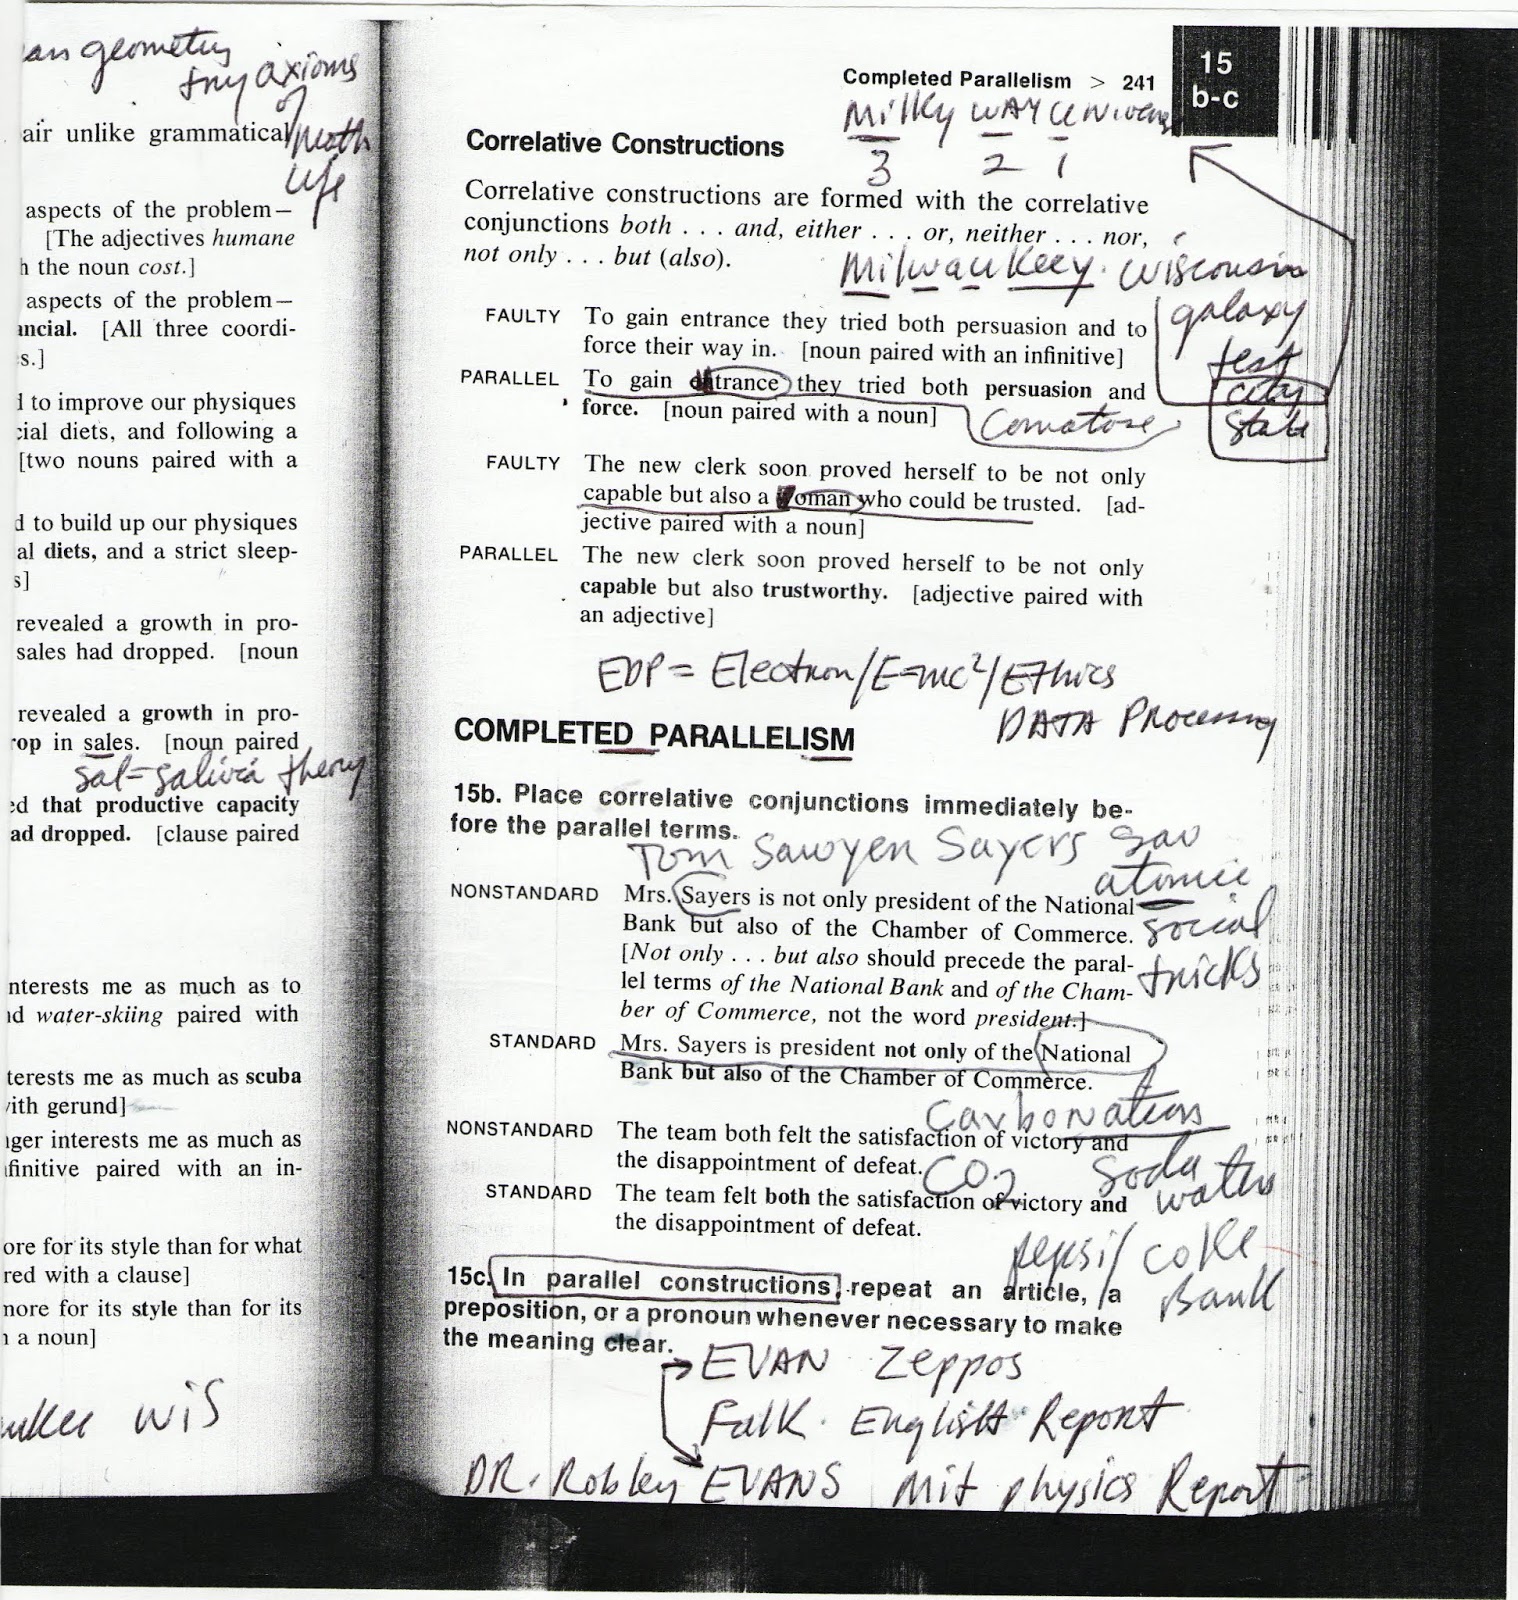 an geometry
try axioms
of
air unlike grammatical math
life
aspects of the problem—
[The adjectives humane
h the noun cost.]
aspects of the problem—
ancial. [All three coordi-
s.]
d to improve our physiques
cial diets, and following a
[two nouns paired with a
d to build up our physiques
al diets, and a strict sleep-
s]
revealed a growth in pro-
sales had dropped. [noun
revealed a growth in pro-
rop in sales. [noun paired
sal=saliva theory
ed that productive capacity
ad dropped. [clause paired
nterests me as much as to
nd water-skiing paired with
terests me as much as scuba
with gerund]
nger interests me as much as
nfinitive paired with an in-
ore for its style than for what
red with a clause]
more for its style than for its
h a noun]
ukee WIS
Completed Parallelism > 241
15
b-c
Milky WAY Univers
3 2 1
Correlative Constructions
Correlative constructions are formed with the correlative
conjunctions both . . . and, either . . . or, neither . . . nor,
not only . . . but (also).
Milwaukeey. Wisconsin
galaxy
test
city
State
FAULTY To gain entrance they tried both persuasion and to
force their way in. [noun paired with an infinitive]
PARALLEL To gain entrance they tried both persuasion and
force. [noun paired with a noun]
Comatose
FAULTY The new clerk soon proved herself to be not only
capable but also a woman who could be trusted. [ad-
jective paired with a noun]
PARALLEL The new clerk soon proved herself to be not only
capable but also trustworthy. [adjective paired with
an adjective]
EDP = Electron/E=mc²/EThics
DATA Processing
COMPLETED PARALLELISM
15b. Place correlative conjunctions immediately be-
fore the parallel terms.
Tom Sawyer Sayers sau
atomic
social
tricks
NONSTANDARD Mrs. Sayers is not only president of the National
Bank but also of the Chamber of Commerce.
[Not only . . . but also should precede the paral-
lel terms of the National Bank and of the Cham-
ber of Commerce, not the word president.]
STANDARD Mrs. Sayers is president not only of the National
Bank but also of the Chamber of Commerce.
Carbonations
NONSTANDARD The team both felt the satisfaction of victory and
the disappointment of defeat.
CO2 Soda
water
STANDARD The team felt both the satisfaction of victory and
the disappointment of defeat.
pepsi/ coke
Bank
15c. In parallel constructions, repeat an article, a
preposition, or a pronoun whenever necessary to make
the meaning clear.
EVAN Zeppos
Falk. English Report
DR. Robley EVANS Mit physics Report